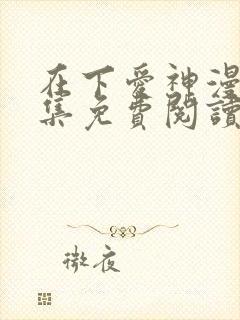 在下愛神漫
集免費閱讀
微夜